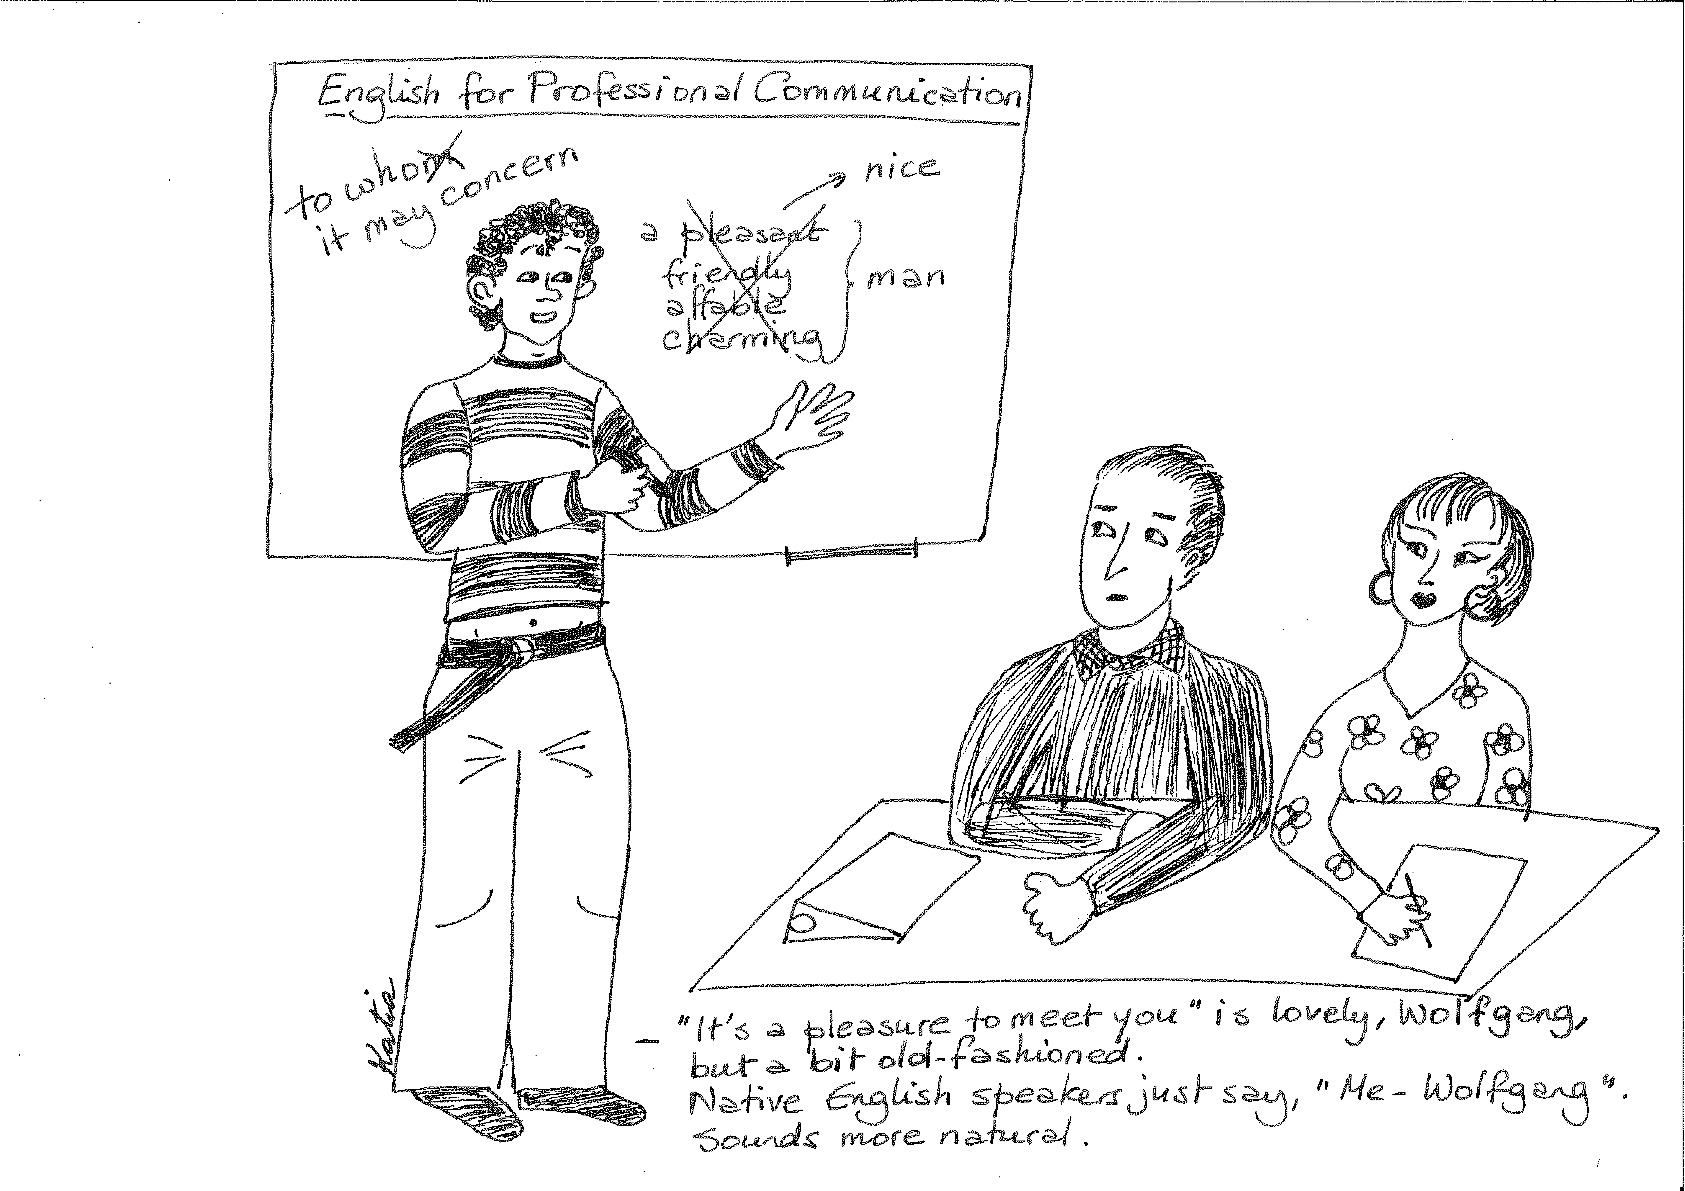 English for Professional Communication
to whom
it may concern
nice
a pleasant
friendly
affable
charming
man
Katis
– "It's a pleasure to meet you" is lovely, Wolfgang,
but a bit old-fashioned.
Native English speakers just say, "Me - Wolfgang".
Sounds more natural.